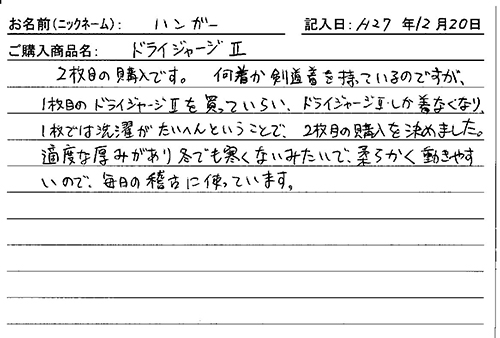 お名前(ニックネーム): ハンガー 記入日: H27 年12月20日
ご購入商品名: ドライジャージⅡ
2枚目の購入です。 何着か剣道着を持っているのですが、
1枚目のドライジャージⅡを買っていらい、ドライジャージⅡしか着なくなり、
1枚では洗濯がたいへんということで、2枚目の購入を決めました。
適度な厚みがあり冬でも寒くないみたいで、柔らかく動きやす
いので、毎日の稽古に使っています。